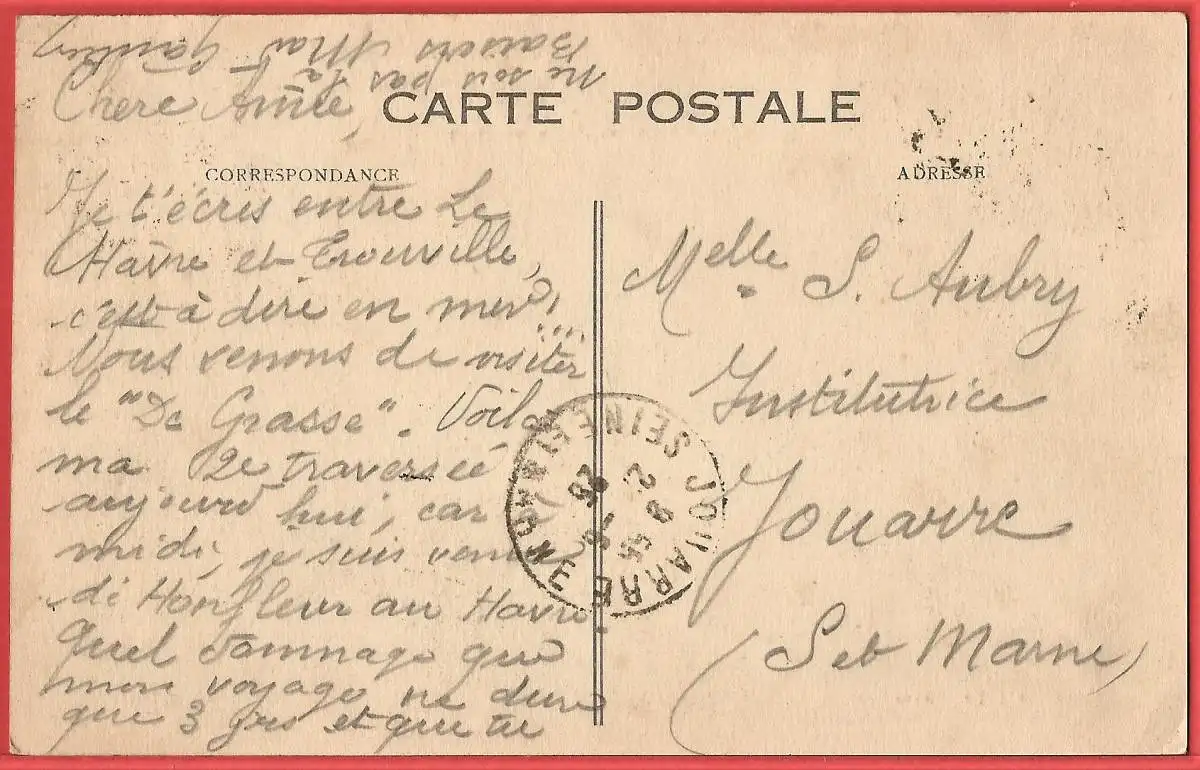 CARTE POSTALE
CORRESPONDANCE
ADRESSE
Chere Amie,
Je t'écris entre Le
Hâvre et Trouville,
c'est à dire en mer,
....
Nous venons de visiter
le "De Grasse". Voilà
ma 2e traversée
aujourd'hui, car
midi, je suis venue
de Honfleur au Havre.
Quel dommage que
mon voyage ne dure
que 3 jrs et que tu
ne sois pas là
Baisers
Melle S. Aubry
Institutrice
Jouarre
(S et Marne)
JOUARRE
SEINE ET MARNE